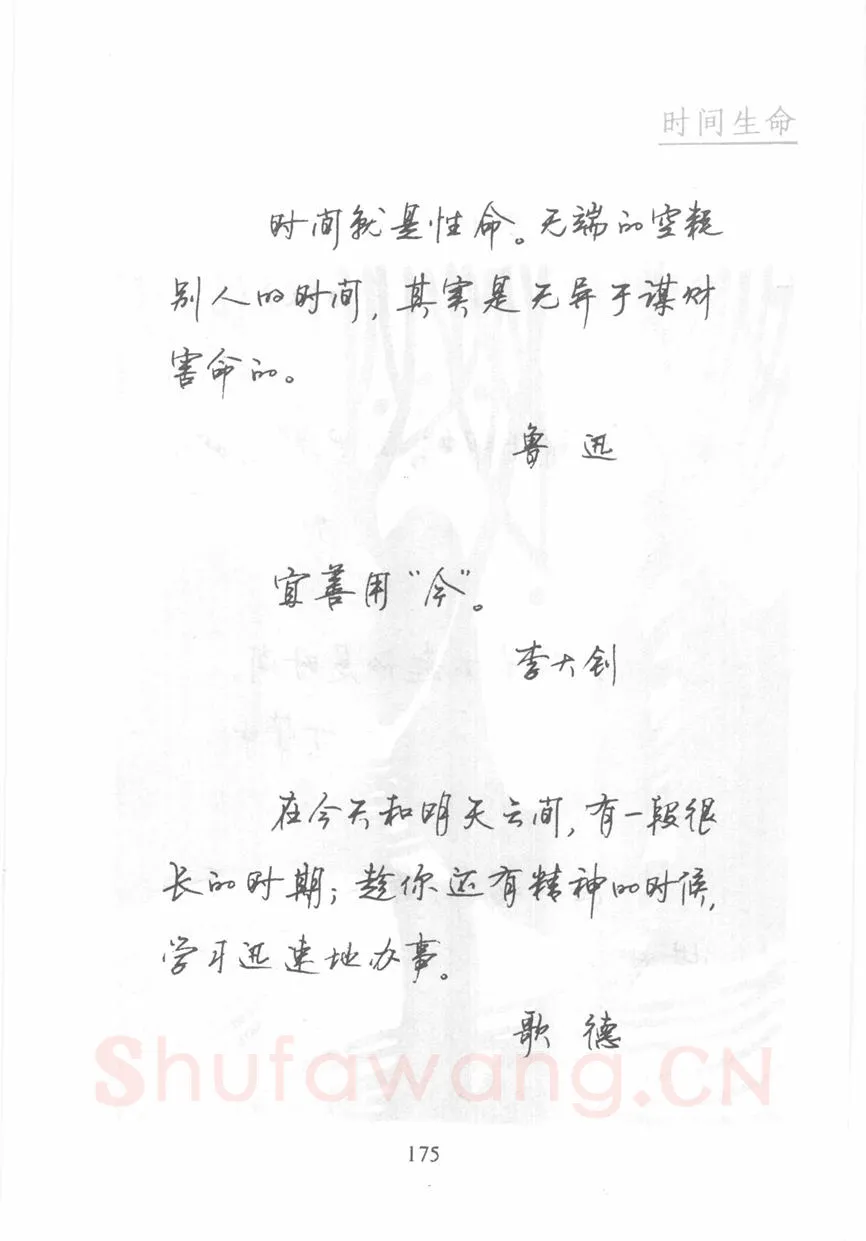 时间生命
时间就是性命。无端的空耗
别人的时间，其实是无异于谋财
害命的。
鲁迅
宜善用“今”。
李大钊
在今天和明天之间，有一段很
长的时期；趁你还有精神的时候，
学习迅速地办事。
歌德
Shufawang.CN
175